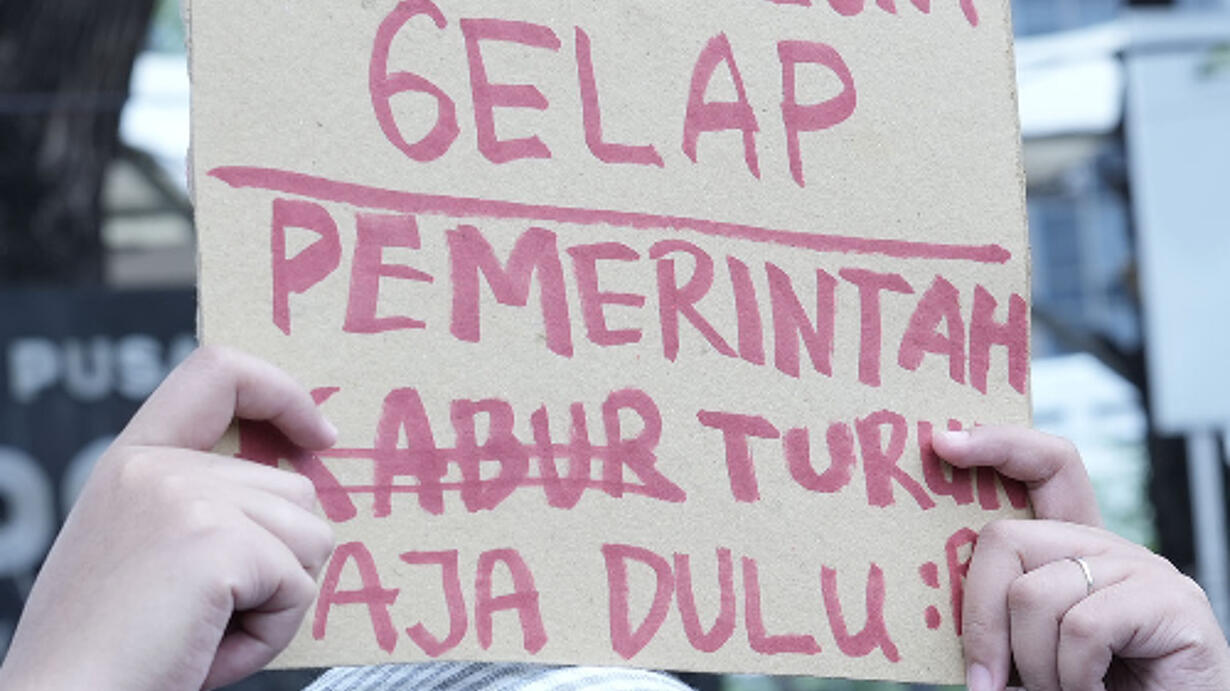 GELAP
PEMERINTAH
KABUR TURUN
AJA DULU :P
PUSA